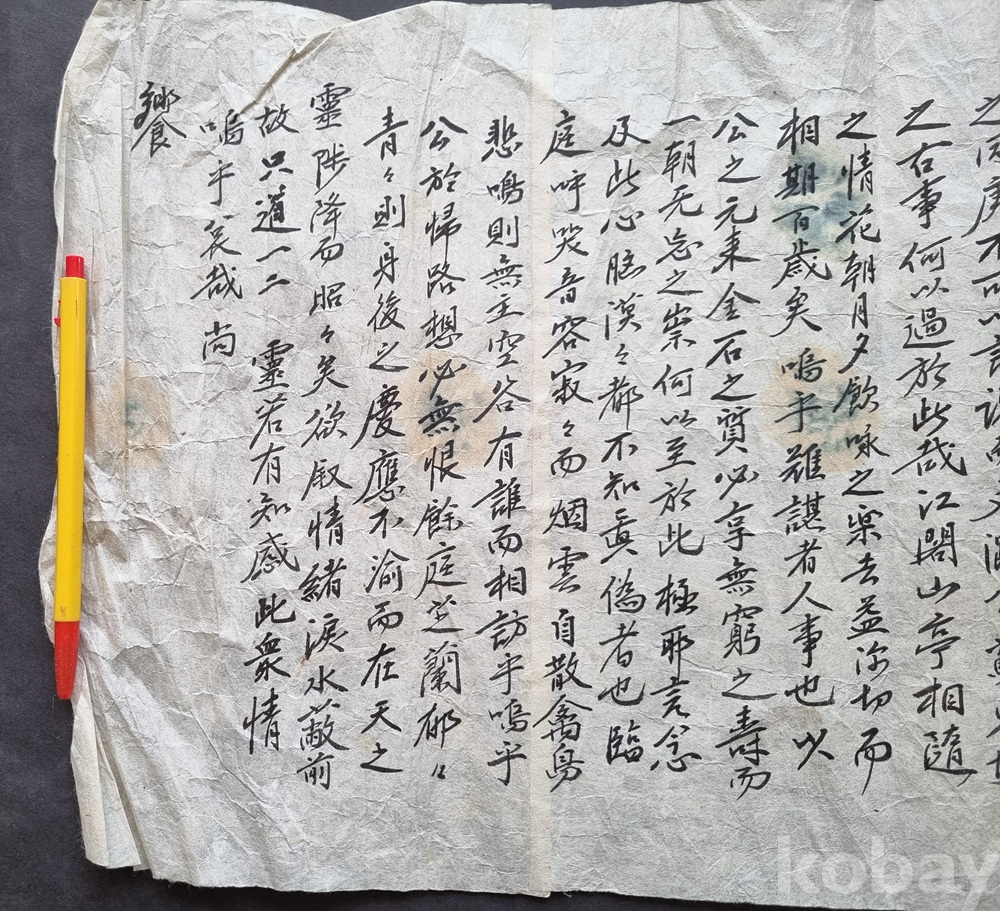 之右事何以過於此哉江閣山亭相隨
之情花朝月夕飮咏之楽去益深切而
相期百歲矣 嗚乎難諶者人事也以
公之元来金石之質必享無窮之壽而
一朝无忘之祟何以至於此極耶言念
及此心腸漠々都不知眞偽者也臨
庭呼哭音容寂々而烟雲自散禽鳥
悲鳴則無主空谷有誰而相訪乎嗚乎
公於帰路想必無恨餘庭芝蘭郁々
青々則身後之慶應不渝而在天之
靈陟降而昭々矣欲叙情緒淚水蔽前
故只道一二 靈若有知感此衆情
嗚乎哀哉尚
饗
kobay